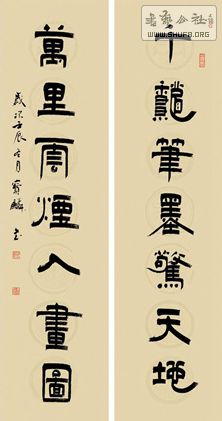 千龍筆墨驚天地
萬里雲煙入畫圖
歲次壬辰
月寶麟書
書藝公社
www.shufa.org